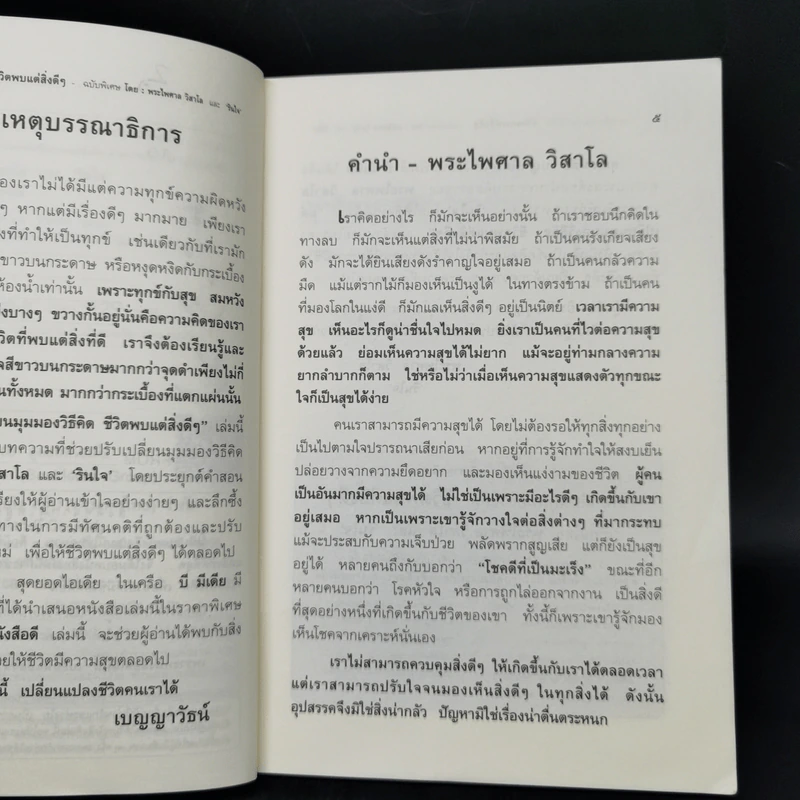 วิตพบแต่สิ่งดีๆ - ฉบับพิเศษ โดย : พระไพศาล วิสาโล และ 'รินใจ'
เหตุบรรณาธิการ
องเราไม่ได้มีแต่ความทุกข์ความผิดหวัง
ๆ หากแต่มีเรื่องดีๆ มากมาย เพียงเรา
งที่ทำให้เป็นทุกข์ เช่นเดียวกับที่เรามัก
ขาวบนกระดาษ หรือหงุดหงิดกับกระเบื้อง
ห้องน้ำเท่านั้น เพราะทุกข์กับสุข สมหวัง
งบางๆ ขวางกั้นอยู่นั่นคือความคิดของเรา
ชีวิตที่พบแต่สิ่งที่ดี เราจึงต้องเรียนรู้และ
จสีขาวบนกระดาษมากกว่าจุดดำเพียงไม่กี่
นทั้งหมด มากกว่ากระเบื้องที่แตกแผ่นนั้น
ยนมุมมองวิธีคิด ชีวิตพบแต่สิ่งดีๆ" เล่มนี้
บทความที่ช่วยปรับเปลี่ยนมุมมองวิธีคิด
สาโล และ 'รินใจ' โดยประยุกต์คำสอน
รียงให้ผู้อ่านเข้าใจอย่างง่ายๆ และลึกซึ้ง
ทางในการมีทัศนคติที่ถูกต้องและปรับ
ม่ เพื่อให้ชีวิตพบแต่สิ่งดีๆ ได้ตลอดไป
สุดยอดไอเดีย ในเครือ บี มีเดีย มี
ที่ได้นำเสนอหนังสือเล่มนี้ในราคาพิเศษ
นังสือดี เล่มนี้ จะช่วยผู้อ่านได้พบกับสิ่ง
วยให้ชีวิตมีความสุขตลอดไป
นี้ เปลี่ยนแปลงชีวิตคนเราได้
เบญญาวัธน์
๕
คำนำ - พระไพศาล วิสาโล
เราคิดอย่างไร ก็มักจะเห็นอย่างนั้น ถ้าเราชอบนึกคิดใน
ทางลบ ก็มักจะเห็นแต่สิ่งที่ไม่น่าพิสมัย ถ้าเป็นคนรังเกียจเสียง
ดัง มักจะได้ยินเสียงดังรำคาญใจอยู่เสมอ ถ้าเป็นคนกลัวความ
มืด แม้แต่รากไม้ก็มองเห็นเป็นงูได้ ในทางตรงข้าม ถ้าเป็นคน
ที่มองโลกในแง่ดี ก็มักแลเห็นสิ่งดีๆ อยู่เป็นนิตย์ เวลาเรามีความ
สุข เห็นอะไรก็ดูน่าชื่นใจไปหมด ยิ่งเราเป็นคนที่ไวต่อความสุข
ด้วยแล้ว ย่อมเห็นความสุขได้ไม่ยาก แม้จะอยู่ท่ามกลางความ
ยากลำบากก็ตาม ใช่หรือไม่ว่าเมื่อเห็นความสุขแสดงตัวทุกขณะ
ใจก็เป็นสุขได้ง่าย
คนเราสามารถมีความสุขได้ โดยไม่ต้องรอให้ทุกสิ่งทุกอย่าง
เป็นไปตามใจปรารถนาเสียก่อน หากอยู่ที่การรู้จักทำใจให้สงบเย็น
ปล่อยวางจากความยึดอยาก และมองเห็นแง่งามของชีวิต ผู้คน
เป็นอันมากมีความสุขได้ ไม่ใช่เป็นเพราะมีอะไรดีๆ เกิดขึ้นกับเขา
อยู่เสมอ หากเป็นเพราะเขารู้จักวางใจต่อสิ่งต่างๆ ที่มากระทบ
แม้จะประสบกับความเจ็บป่วย พลัดพรากสูญเสีย แต่ก็ยังเป็นสุข
อยู่ได้ หลายคนถึงกับบอกว่า "โชคดีที่เป็นมะเร็ง" ขณะที่อีก
หลายคนบอกว่า โรคหัวใจ หรือการถูกไล่ออกจากงาน เป็นสิ่งดี
ที่สุดอย่างหนึ่งที่เกิดขึ้นกับชีวิตของเขา ทั้งนี้ก็เพราะเขารู้จักมอง
เห็นโชคจากเคราะห์นั่นเอง
เราไม่สามารถควบคุมสิ่งดีๆ ให้เกิดขึ้นกับเราได้ตลอดเวลา
แต่เราสามารถปรับใจจนมองเห็นสิ่งดีๆ ในทุกสิ่งได้ ดังนั้น
อุปสรรคจึงมิใช่สิ่งน่ากลัว ปัญหามิใช่เรื่องน่าตื่นตระหนก